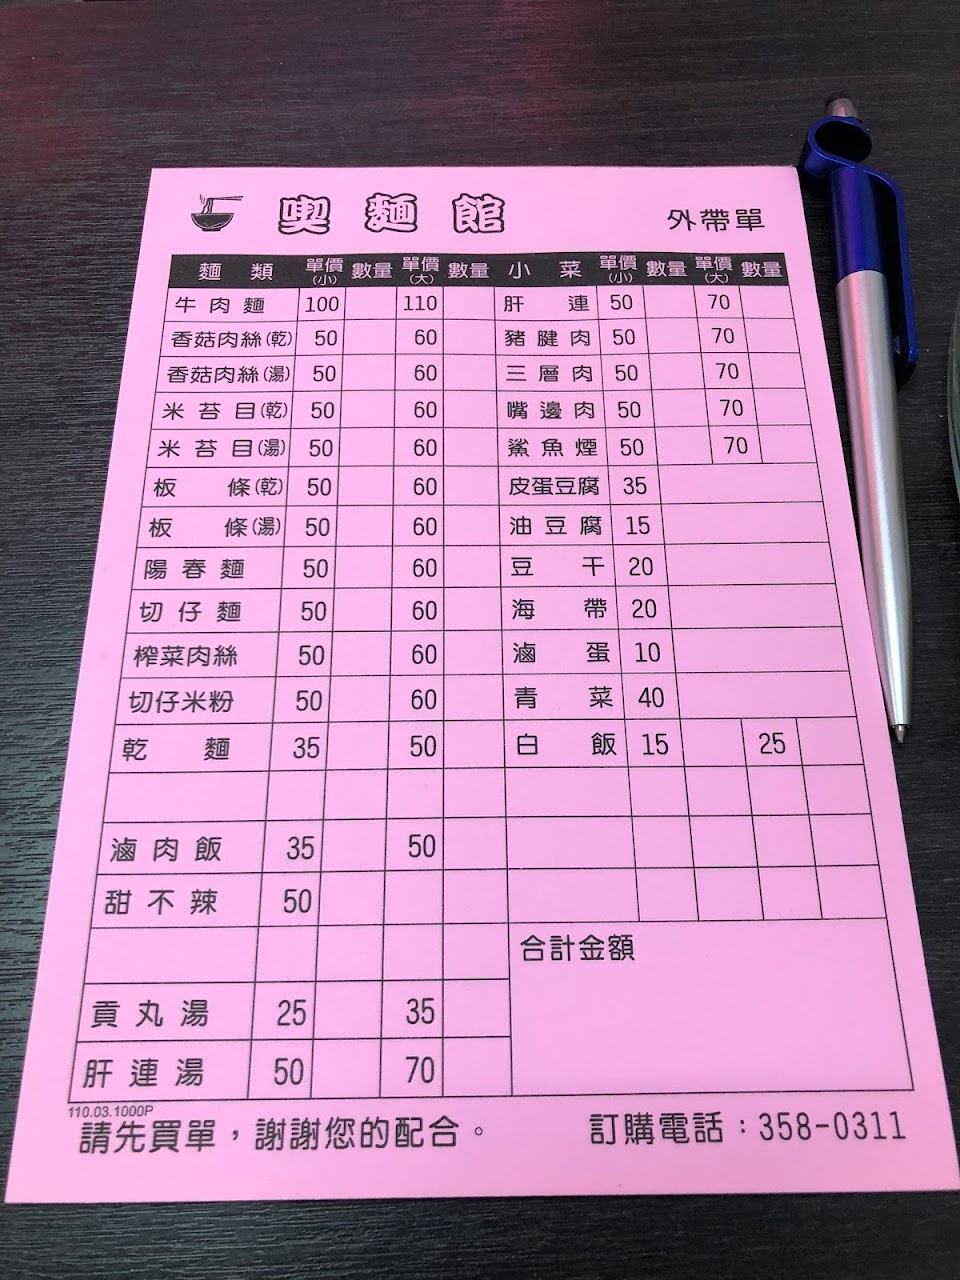 喫麵館 外帶單
麵類 單價(小) 數量 單價(大) 數量 小菜 單價(小) 數量 單價(大) 數量
牛肉麵 100 110 肝連 50 70
香菇肉絲(乾) 50 60 豬腱肉 50 70
香菇肉絲(湯) 50 60 三層肉 50 70
米苔目(乾) 50 60 嘴邊肉 50 70
米苔目(湯) 50 60 鯊魚煙 50 70
板條(乾) 50 60 皮蛋豆腐 35
板條(湯) 50 60 油豆腐 15
陽春麵 50 60 豆干 20
切仔麵 50 60 海帶 20
榨菜肉絲 50 60 滷蛋 10
切仔米粉 50 60 青菜 40
乾麵 35 50 白飯 15 25
滷肉飯 35 50
甜不辣 50
合計金額
貢丸湯 25 35
肝連湯 50 70
110.03.1000P
請先買單，謝謝您的配合。 訂購電話：358-0311